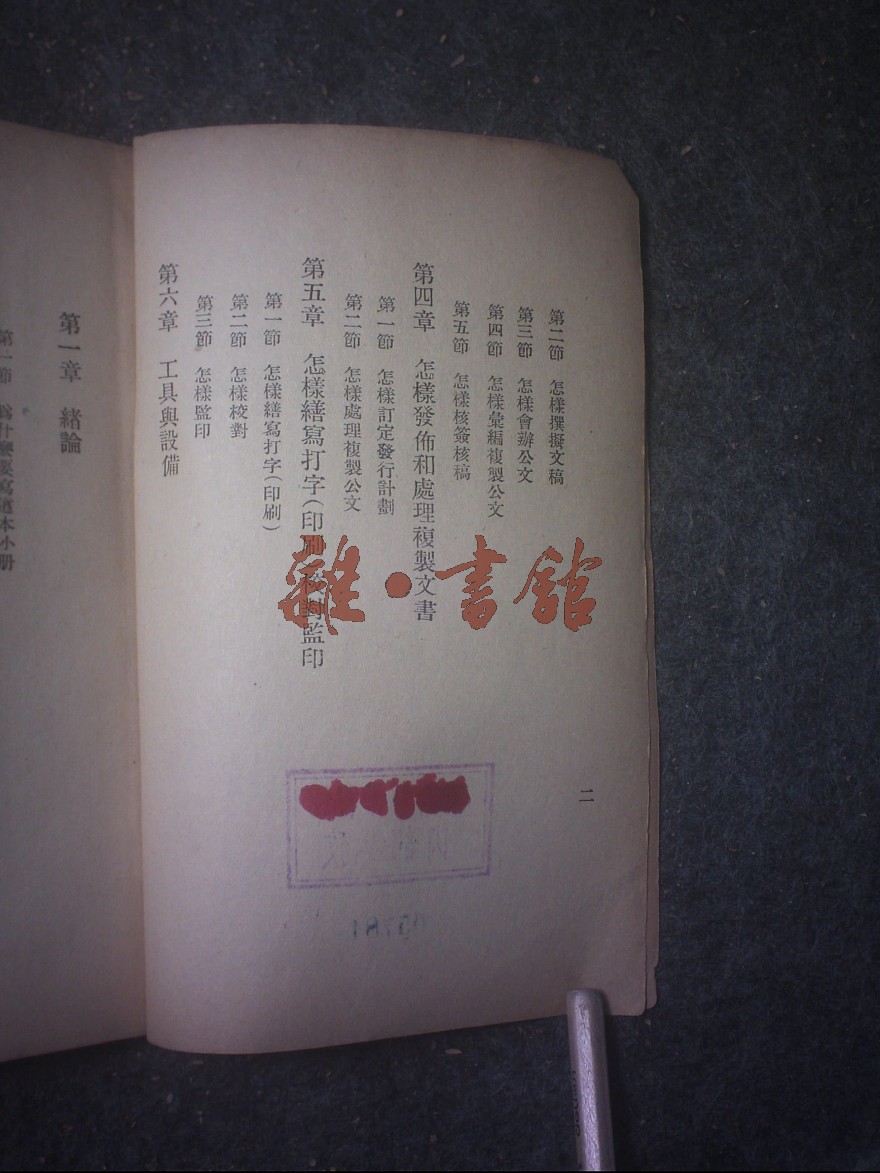 第二節　怎樣撰擬文稿
第三節　怎樣會辦公文
第四節　怎樣彙編複製公文
第五節　怎樣核簽核稿
第四章　怎樣發佈和處理複製文書
第一節　怎樣訂定發行計劃
第二節　怎樣處理複製公文
第五章　怎樣繕寫打字（印刷）校對監印
第一節　怎樣繕寫打字（印刷）
第二節　怎樣校對
第三節　怎樣監印
第六章　工具與設備
二
雜·書館
第一章　緒論
第一節　為什麼要寫這本小册